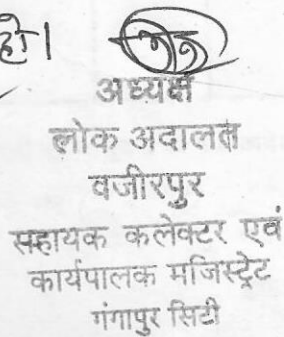 हो।
अध्यक्ष
लोक अदालत
वजीरपुर
सहायक कलेक्टर एवं
कार्यपालक मजिस्ट्रेट
गंगापुर सिटी